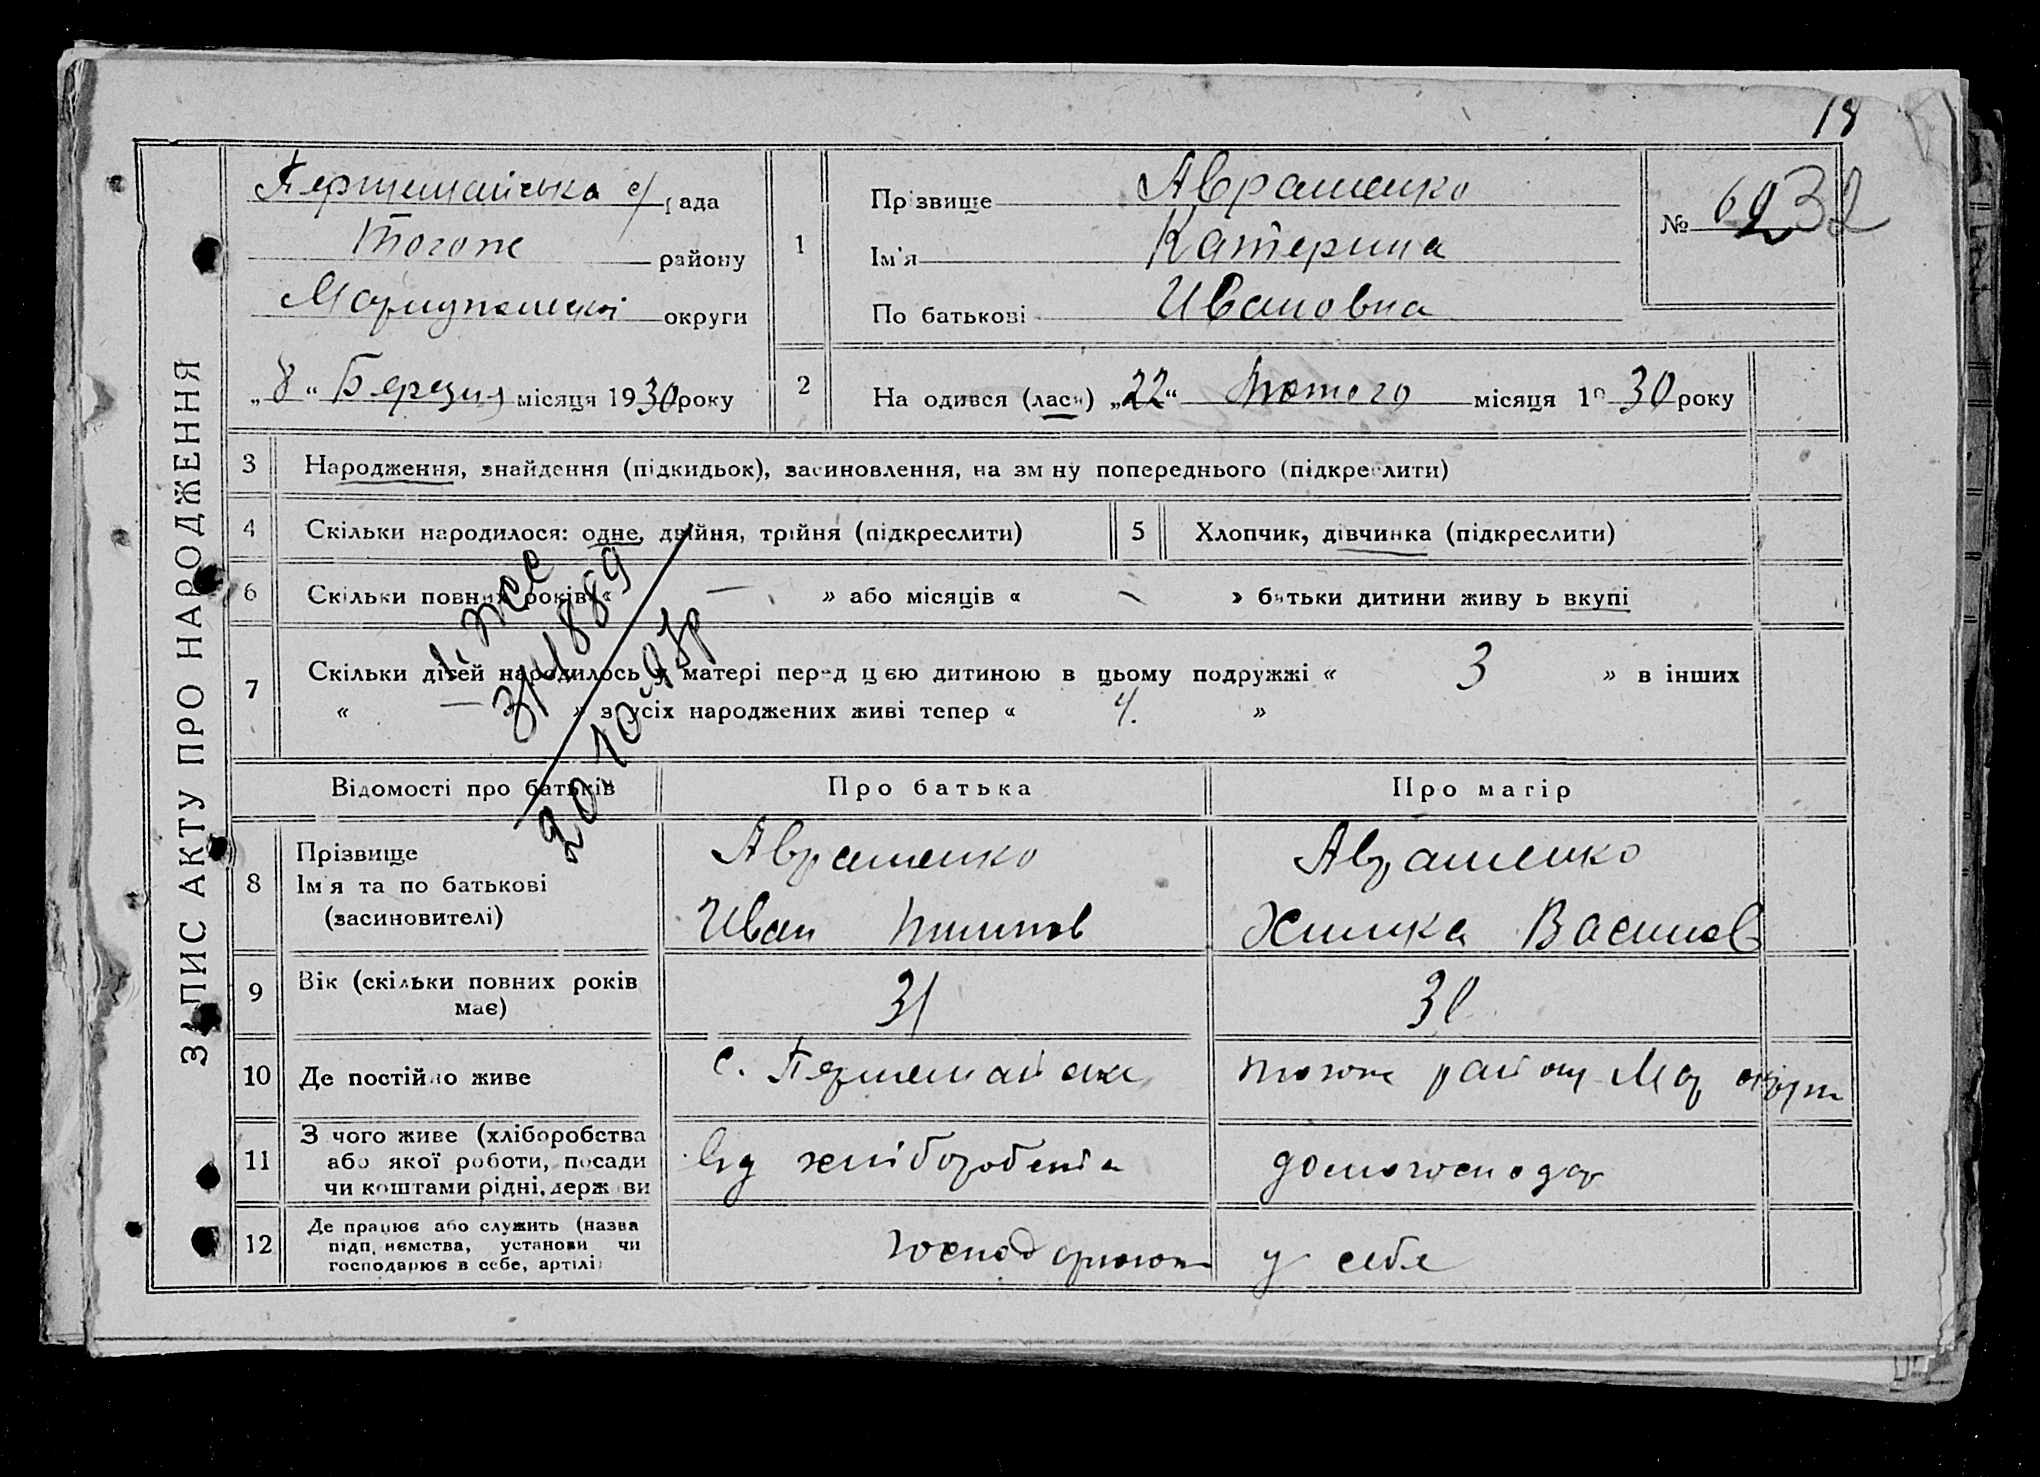 18
ЗАПИС АКТУ ПРО НАРОДЖЕННЯ
Першемайська с/рада
Тогоже району
Маріупольської округи
„8“ Березня місяця 1930 року
1
Прізвище Аврашенко
Ім'я Катерина
По батькові Ивановна
№ 32
2
На одився (лась) „22“ Лютого місяця 19 30 року
3 Народження, знайдення (підкидьок), засиновлення, на зм ну попереднього (підкреслити)
4 Скільки народилося: одне, двійня, трійня (підкреслити)
5 Хлопчик, дівчинка (підкреслити)
6 Скільки повних років « — » або місяців « — » батьки дитини живу ь вкупі
7 Скільки дітей народилось у матері перед цією дитиною в цьому подружжі « 3 » в інших
« — » з усіх народжених живі тепер « 4. »
Відомості про батьків
Про батька
Про матір
8 Прізвище
Ім'я та по батькові
(засиновителі)
Аврашенко
Иван
Аврашенко
Химка Васильов
9 Вік (скільки повних років
має)
31
30
10 Де постійно живе
с. Першемайське
тогоже району Мар округи
11 З чого живе (хліборобства
або якої роботи, посади
чи коштами рідні, держ ви
від хліборобства
домогосподар
12 Де працює або служить (назва
підп, нємства, установи чи
господарює в себе, артілі)
господарюють у себе